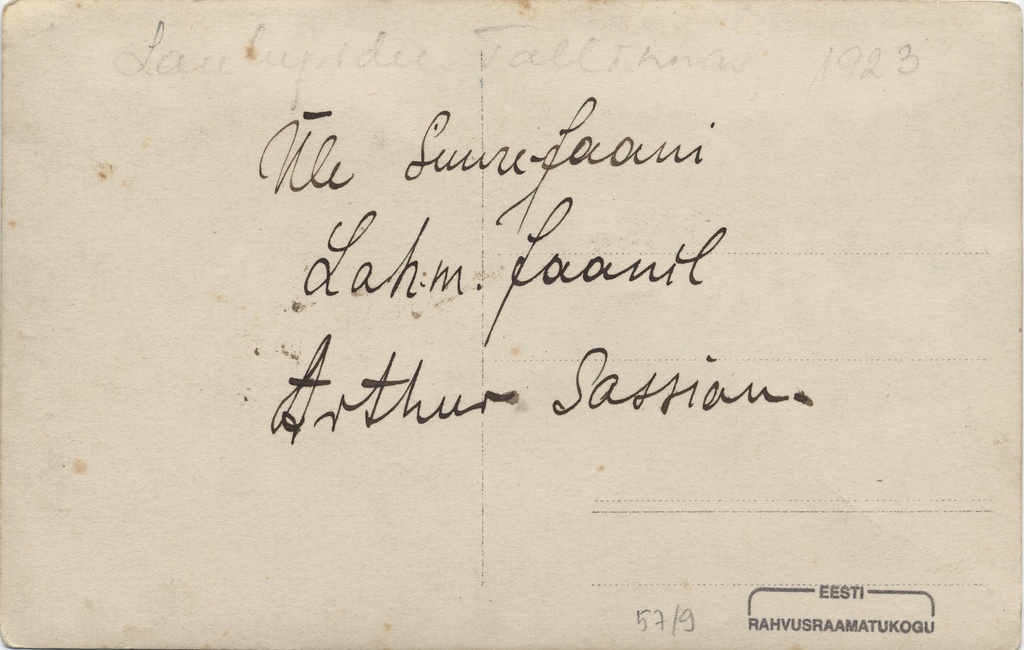 Laulupidu Tallinnas, 1923
Üle Suure-Jaani
Lahm. Jaanil
Arthur Sassian.
57/9
EESTI
RAHVUSRAAMATUKOGU